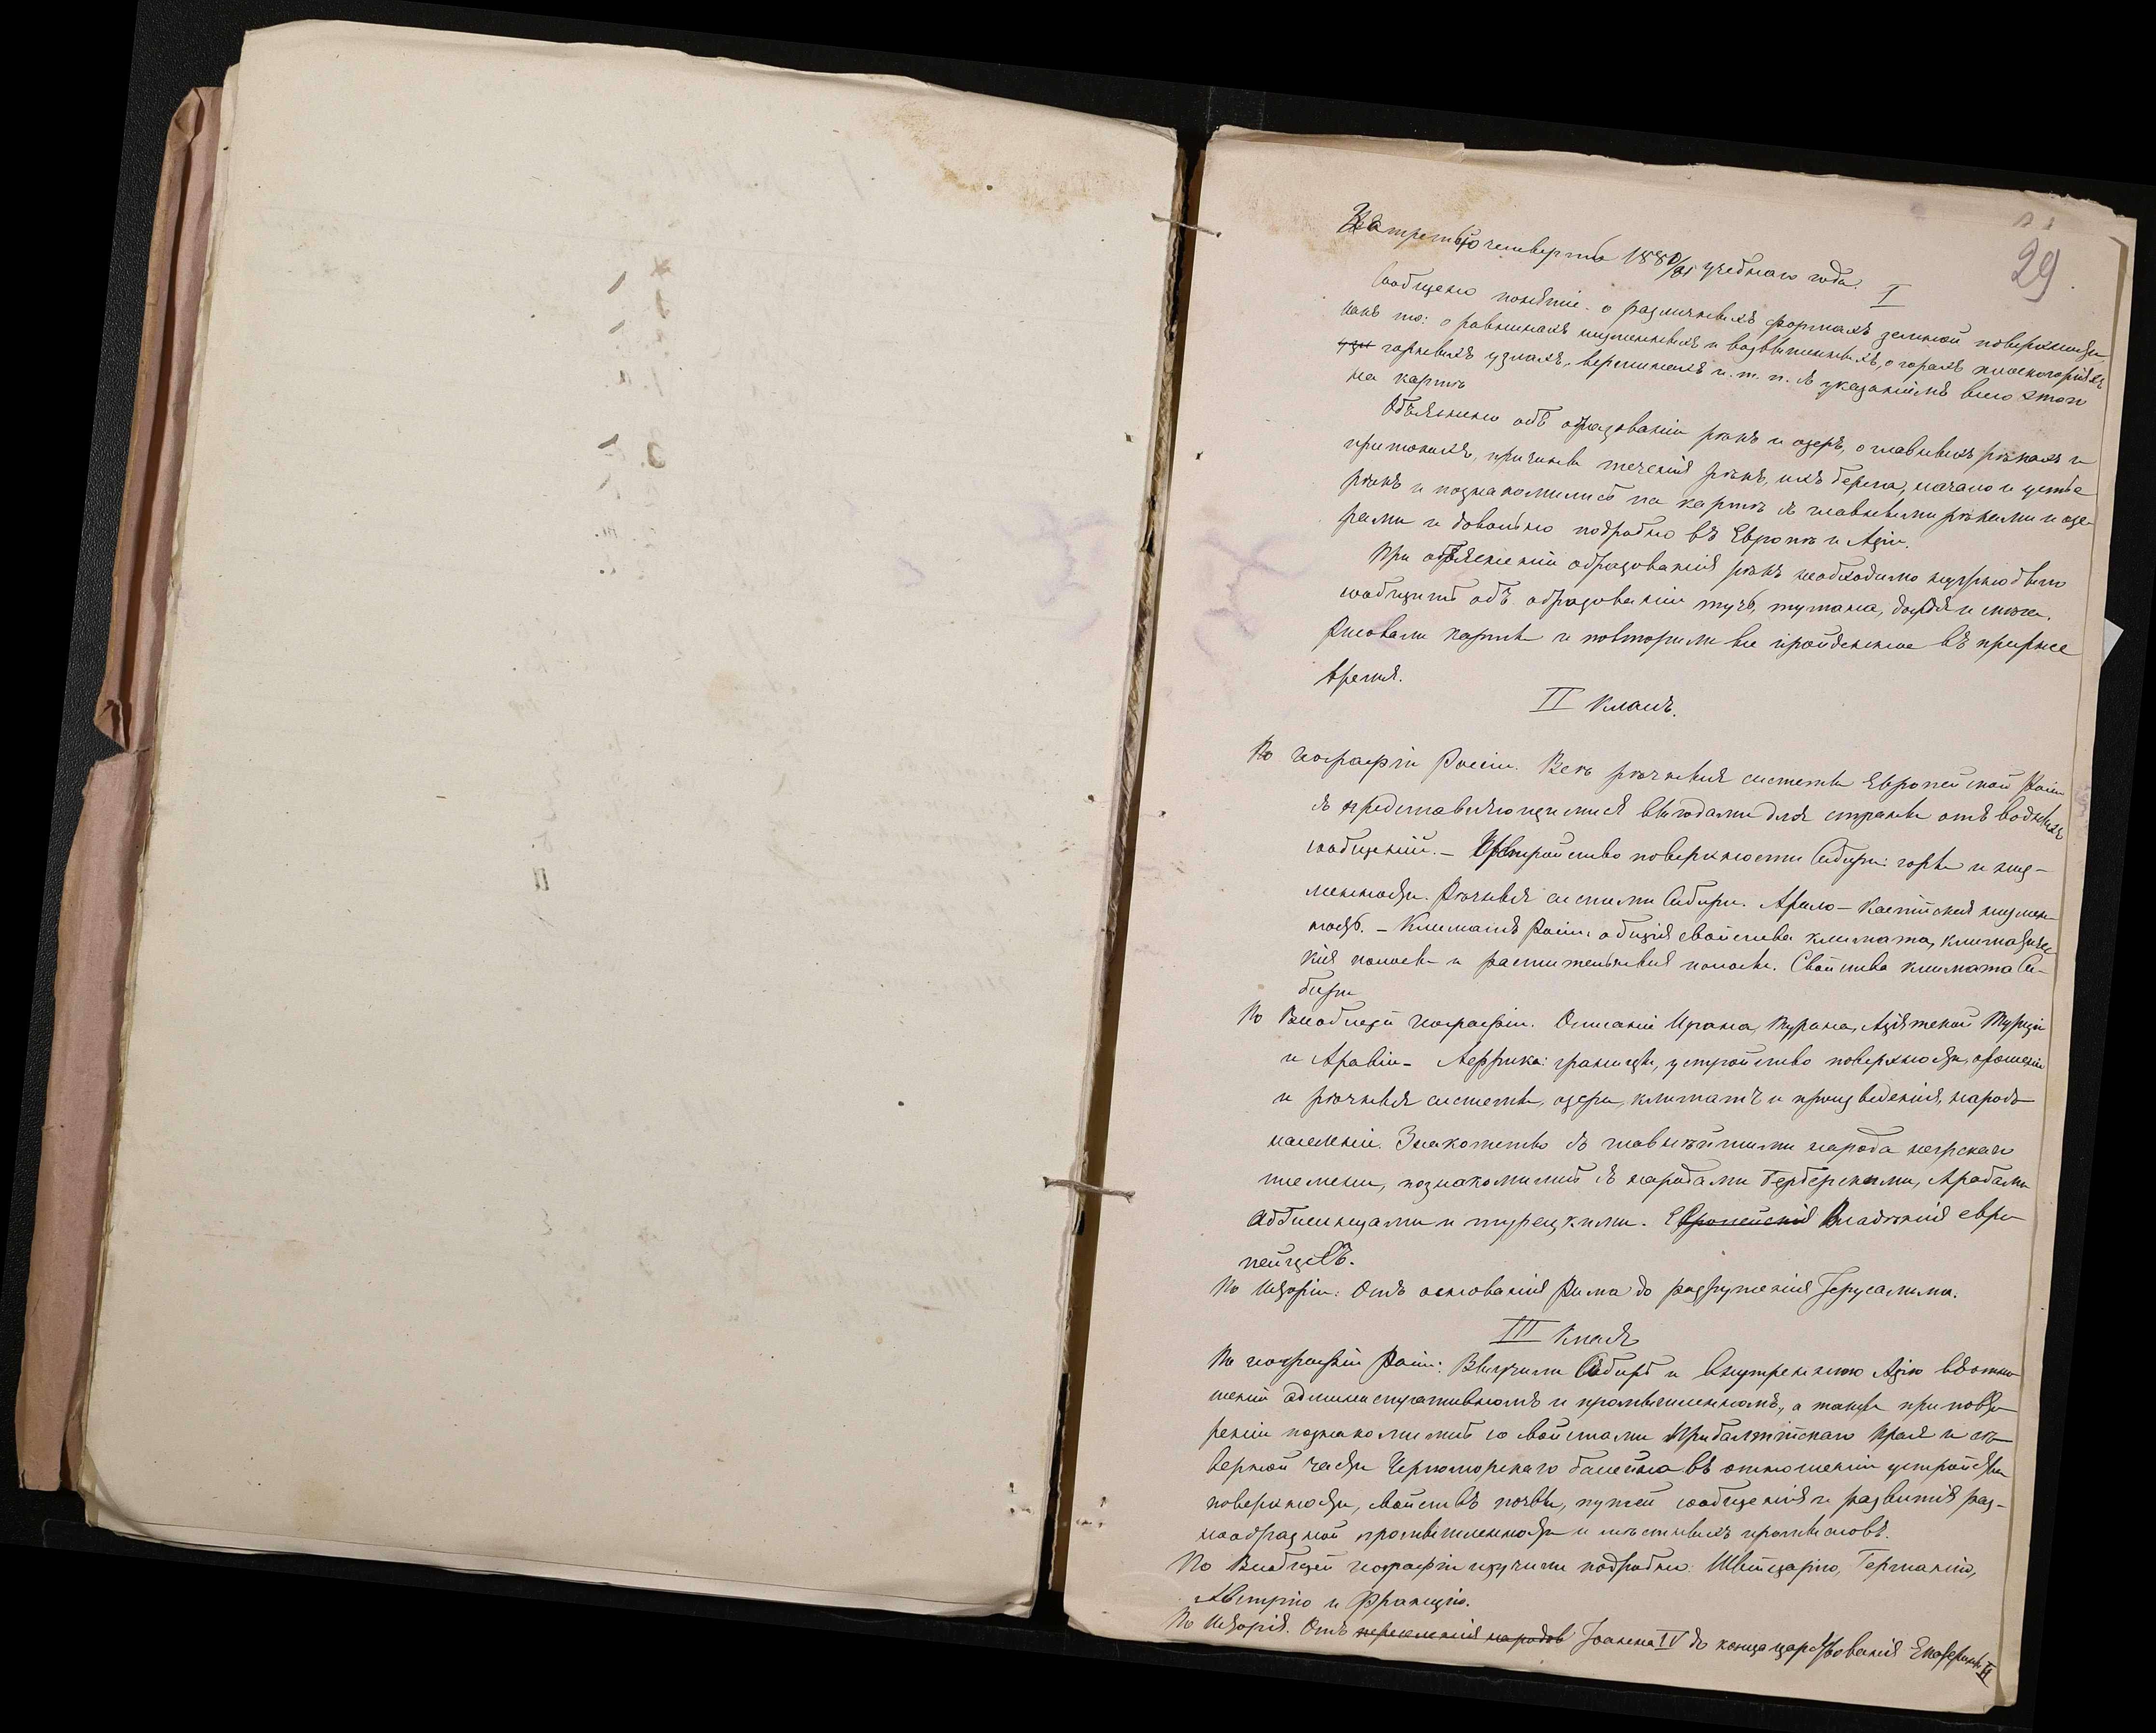 29
За третью четверть 1880/81 учебнаго года.
I
Сообщено понятіе о различныхъ формахъ земной поверхности,
какъ то: о равнинахъ низменныхъ и возвышенныхъ, о горахъ плоскогоріяхъ
горныхъ узлахъ, вершинахъ и. т. п. съ указаніемъ всего этого
на картѣ
Объяснено объ образованіи рѣкъ и озеръ, о главныхъ рѣкахъ и
притокахъ, причины теченія рѣкъ, ихъ берега, начало и устье
рѣкъ и познакомились на картѣ съ главными рѣками и озе-
рами и довольно подробно въ Европѣ и Азіи.
При объясненіи образованія рѣкъ необходимо нужно было
сообщить объ образованіи тучъ, тумана, дождя и снѣга.
Рисовали карты и повторили все пройденное въ прежнее
время.
II Классъ.
По географіи Россіи. Всѣ рѣчныя системы Европейской Россіи
съ представляющимися выгодами для страны отъ водныхъ
сообщеній. – Устройство поверхности Сибири: горы и низ-
менности. Рѣчныя системы Сибири. Арало-Каспійская низмен-
ность. – Климатъ Россіи: общія свойства климата, климатичес
кія полосы и растительныя полосы. Свойства климата Си-
бири
По Всеобщей географіи. Описаніе Ирана, Турана, Азіятской Турціи
и Аравіи – Африка: границы, устройство поверхности, орошеніе
и рѣчныя системы, озера, климатъ и произведенія, народо-
населеніе. Знакомство съ главнѣйшими народа негрскаго
племени, познакомились съ народами Берберскими, Арабами
Абиссинцами и турецкими. Европейскія Владѣнія евро-
пейцевъ.
По Исторіи: Отъ основанія Рима до разрушенія Іерусалима.
III Классъ
По географіи Россіи: Выучили Сибирь и внутреннюю Азію въ отно-
шеніи административномъ и промышленномъ, а также при повто-
реніи познакомились со свойствами Прибалтійскаго края и сѣ-
верной части Черноморскаго бассейна въ отношеніи устройства
поверхности, свойствъ почвы, путей сообщенія и развитія раз-
нообразной промышленности и мѣстныхъ промысловъ.
По Всеобщей географіи изучили подробно: Швейцарію, Германію,
Австрію и Францію.
По Исторіи. Отъ переселенія народовъ Іоанна IV до конца царствованія Екатерины II